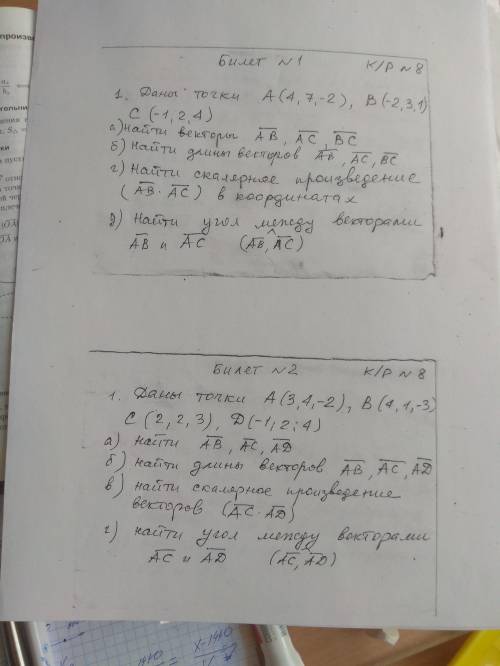 Билет №1 К/Р №8
1. Даны точки A(4,7,-2), B(-2,3,1)
C(-1,2,4)
а) Найти векторы AB, AC, BC
б) Найти длины векторов AB, AC, BC
г) Найти скалярное произведение
(AB · AC) в координатах
д) Найти угол между векторами
AB и AC (AB,^AC)
Билет №2 К/Р №8
1. Даны точки A(3,4,-2), B(4,1,-3)
C(2,2,3), D(-1,2;4)
а) найти AB, AC, AD
б) найти длины векторов AB, AC, AD
в) найти скалярное произведение
векторов (AC · AD)
г) найти угол между векторами
AC и AD (AC,^AD)